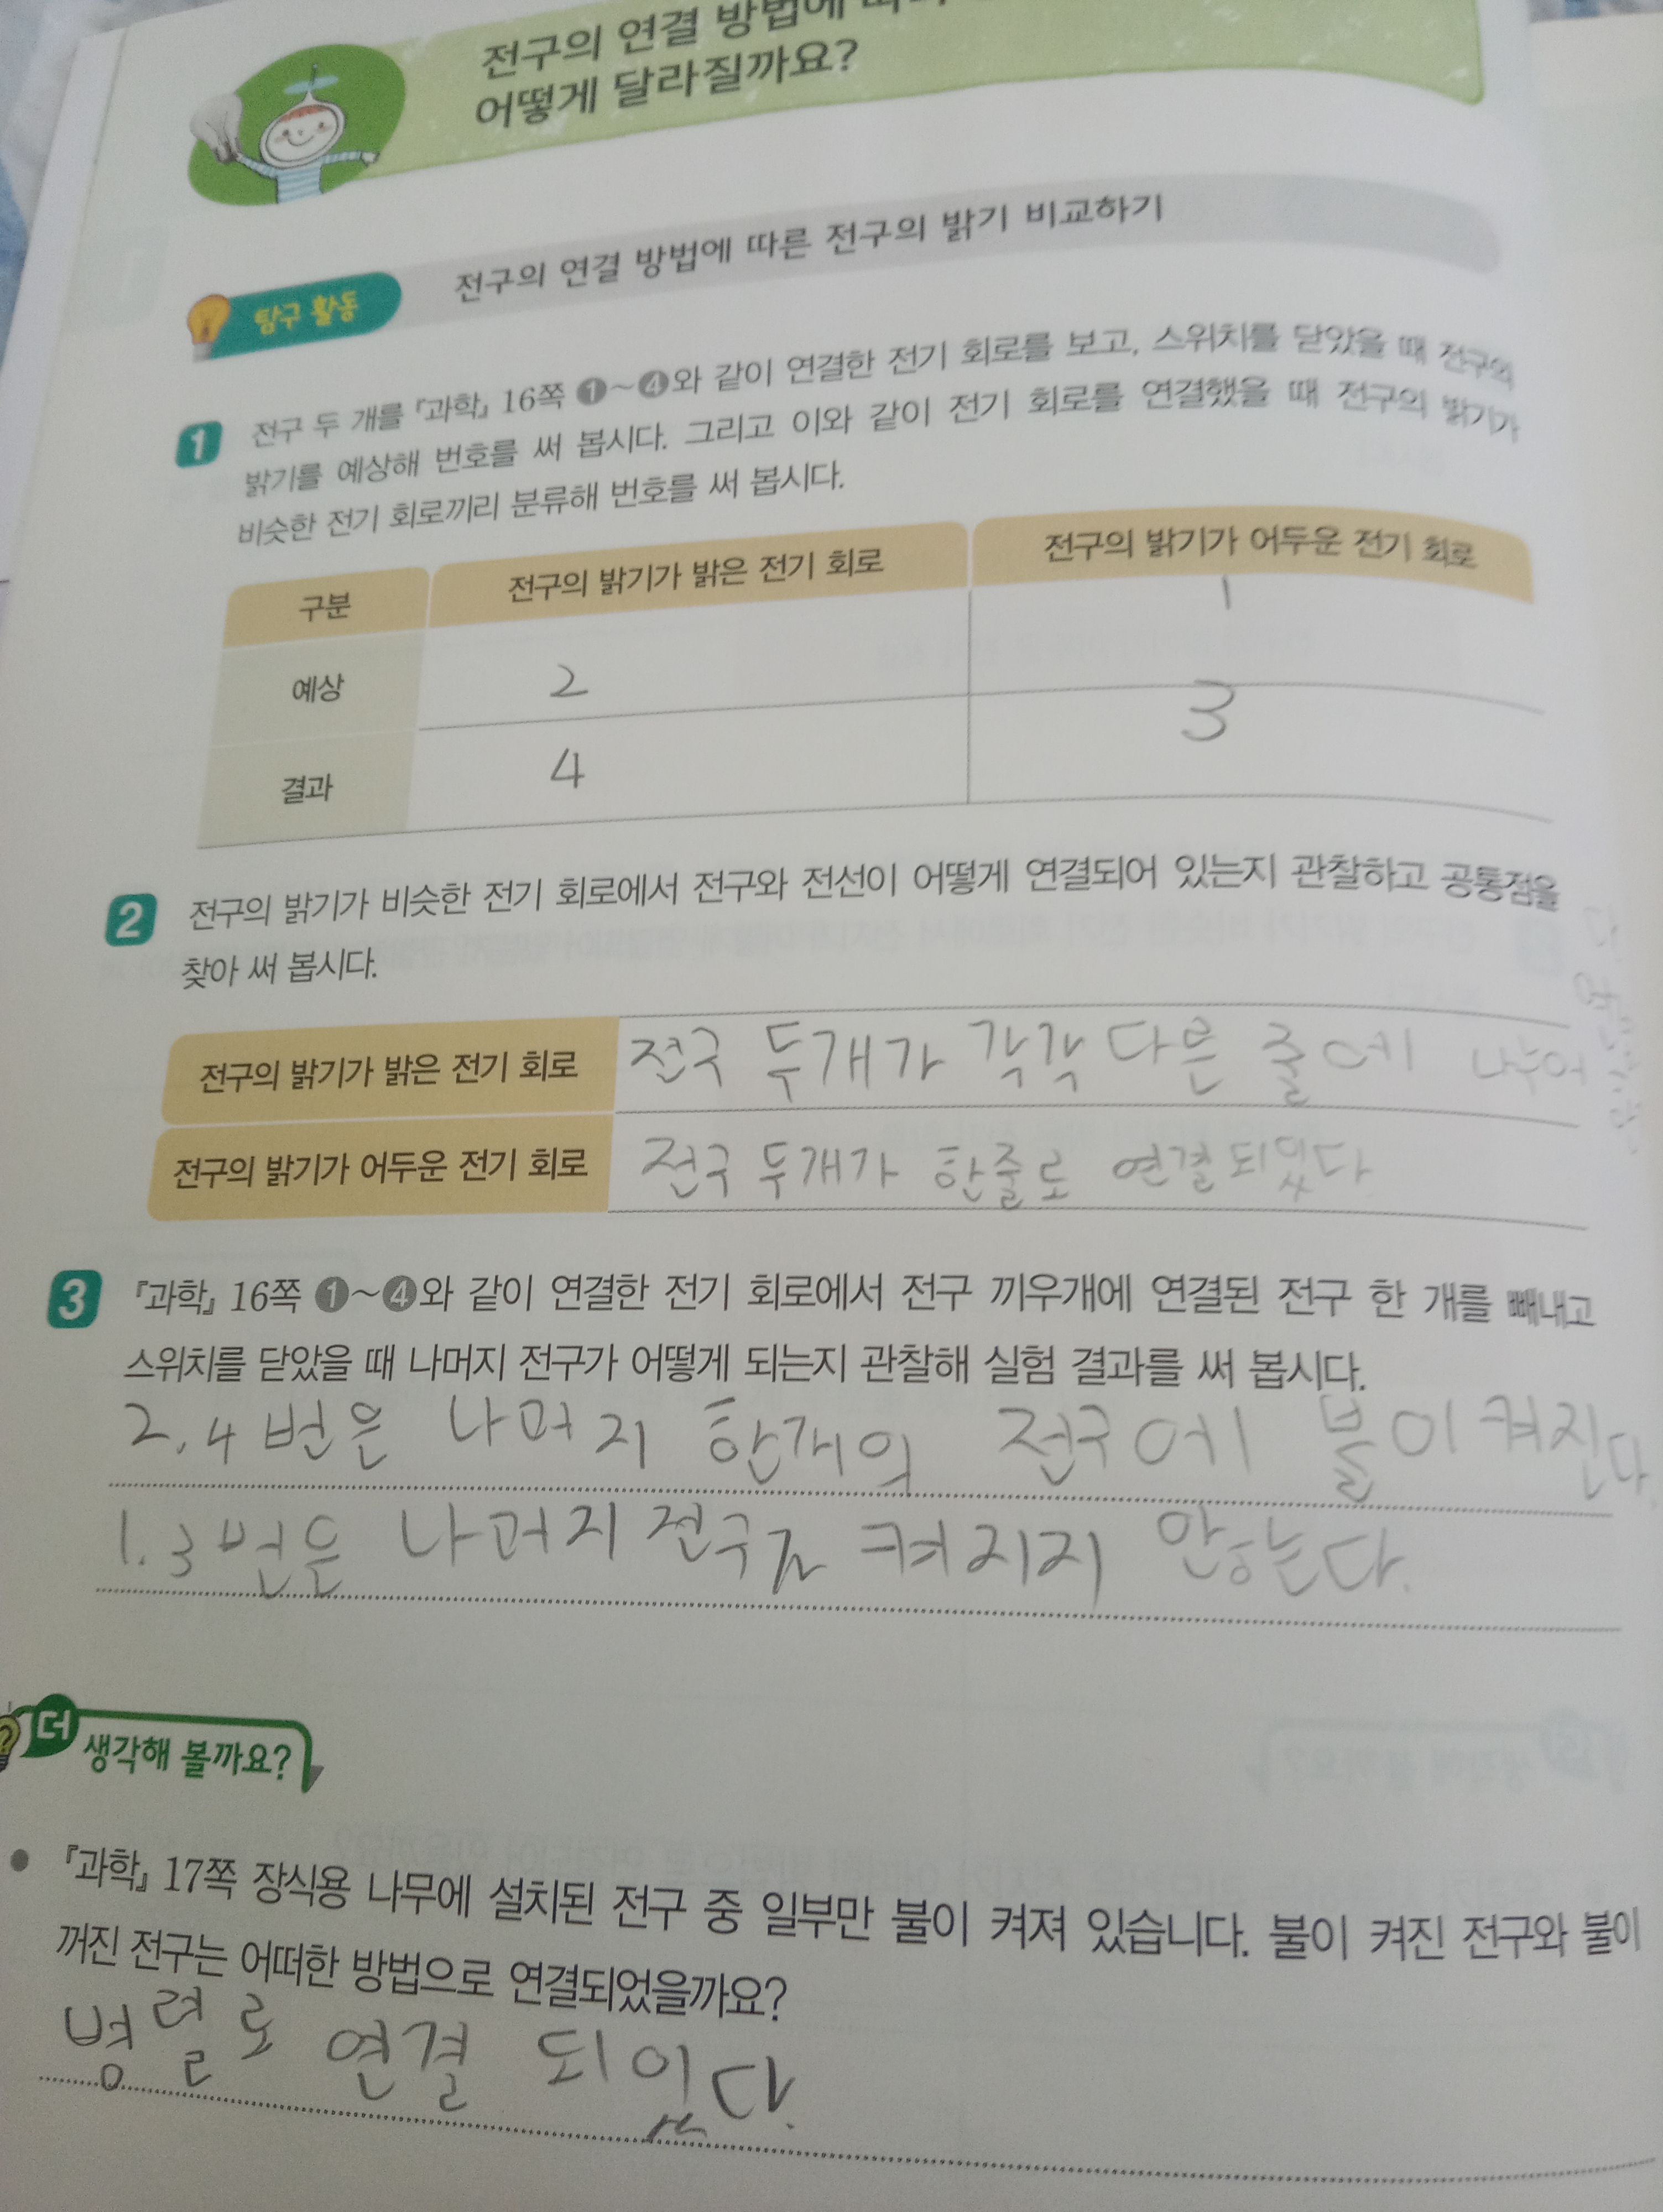 전구의 연결 방법에
어떻게 달라질까요?
탐구 활동
전구의 연결 방법에 따른 전구의 밝기 비교하기
1 전구 두 개를 『과학』 16쪽 ❶~❹와 같이 연결한 전기 회로를 보고, 스위치를 닫았을 때 전구의
밝기를 예상해 번호를 써 봅시다. 그리고 이와 같이 전기 회로를 연결했을 때 전구의 밝기가
비슷한 전기 회로끼리 분류해 번호를 써 봅시다.
구분 전구의 밝기가 밝은 전기 회로 전구의 밝기가 어두운 전기 회로
예상 2 1
결과 4 3
2 전구의 밝기가 비슷한 전기 회로에서 전구와 전선이 어떻게 연결되어 있는지 관찰하고 공통점을
찾아 써 봅시다.
전구의 밝기가 밝은 전기 회로 전구 두개가 각각 다른 줄에 나누어
전구의 밝기가 어두운 전기 회로 전구 두개가 한줄로 연결되있다
3 『과학』 16쪽 ❶~❹와 같이 연결한 전기 회로에서 전구 끼우개에 연결된 전구 한 개를 빼내고
스위치를 닫았을 때 나머지 전구가 어떻게 되는지 관찰해 실험 결과를 써 봅시다.
2, 4 번은 나머지 한개의 전구에 불이 켜진다.
1. 3 번은 나머지 켜지지 안하는다.
더
생각해 볼까요?
• 『과학』 17쪽 장식용 나무에 설치된 전구 중 일부만 불이 켜져 있습니다. 불이 켜진 전구와 불이
꺼진 전구는 어떠한 방법으로 연결되었을까요?
병렬로 연결 되있다.